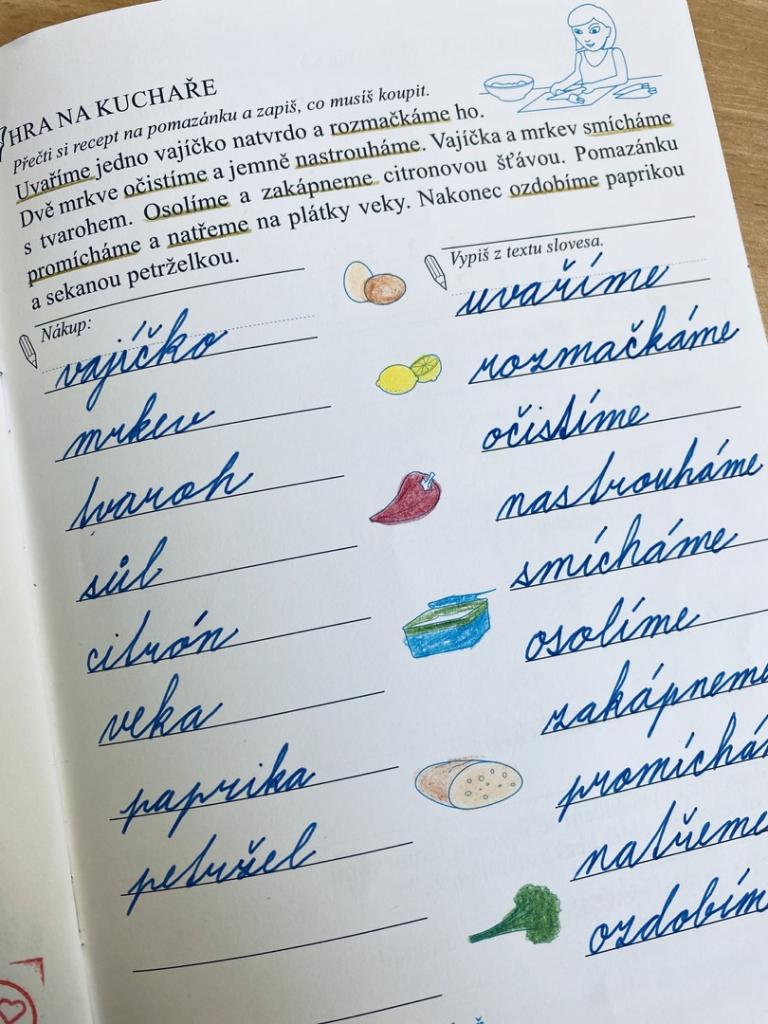 HRA NA KUCHAŘE
Přečti si recept na pomazánku a zapiš, co musíš koupit.
Uvaříme jedno vajíčko natvrdo a rozmačkáme ho.
Dvě mrkve očistíme a jemně nastrouháme. Vajíčka a mrkev smícháme
s tvarohem. Osolíme a zakápneme citronovou šťávou. Pomazánku
promícháme a natřeme na plátky veky. Nakonec ozdobíme paprikou
a sekanou petrželkou.
Nákup:
vajíčko
mrkev
tvaroh
sůl
citrón
veka
paprika
petržel
Vypiš z textu slovesa.
uvaříme
rozmačkáme
očistíme
nastrouháme
smícháme
osolíme
zakápneme
promíchá
natřeme
ozdobím